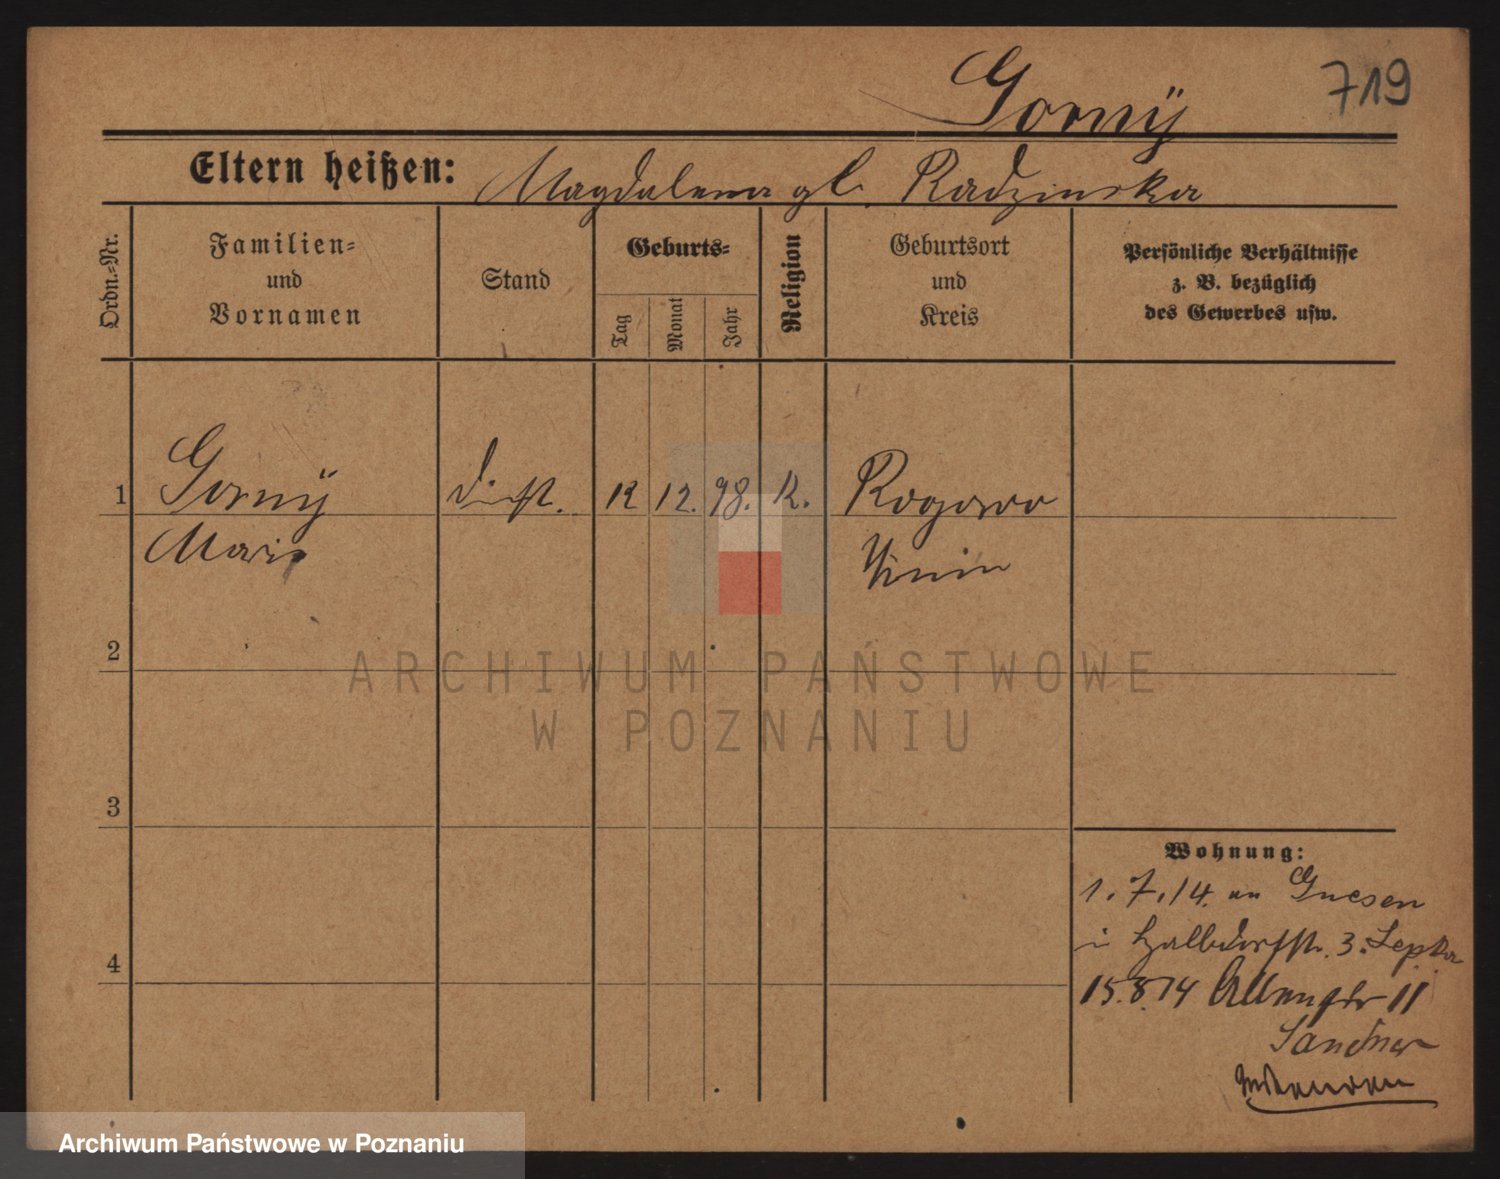 719
Gorny
Eltern heißen: Magdalena gb. Radzinska
Ordn.=Nr.
Familien=
und
Vornamen
Stand
Geburts=
Tag
Monat
Jahr
Religion
Geburtsort
und
Kreis
Persönliche Verhältnisse
z. B. bezüglich
des Gewerbes usw.
1 Gorny Dienst. 12 12. 98. K. Rogowo
Marie Znin
2
3
4
Wohnung:
1.7.14. an Gnesen
i Halbdorfstr. 3. Lepka
15.8.14 11
ARCHIWUM PAŃSTWOWE
W POZNANIU
Archiwum Państwowe w Poznaniu